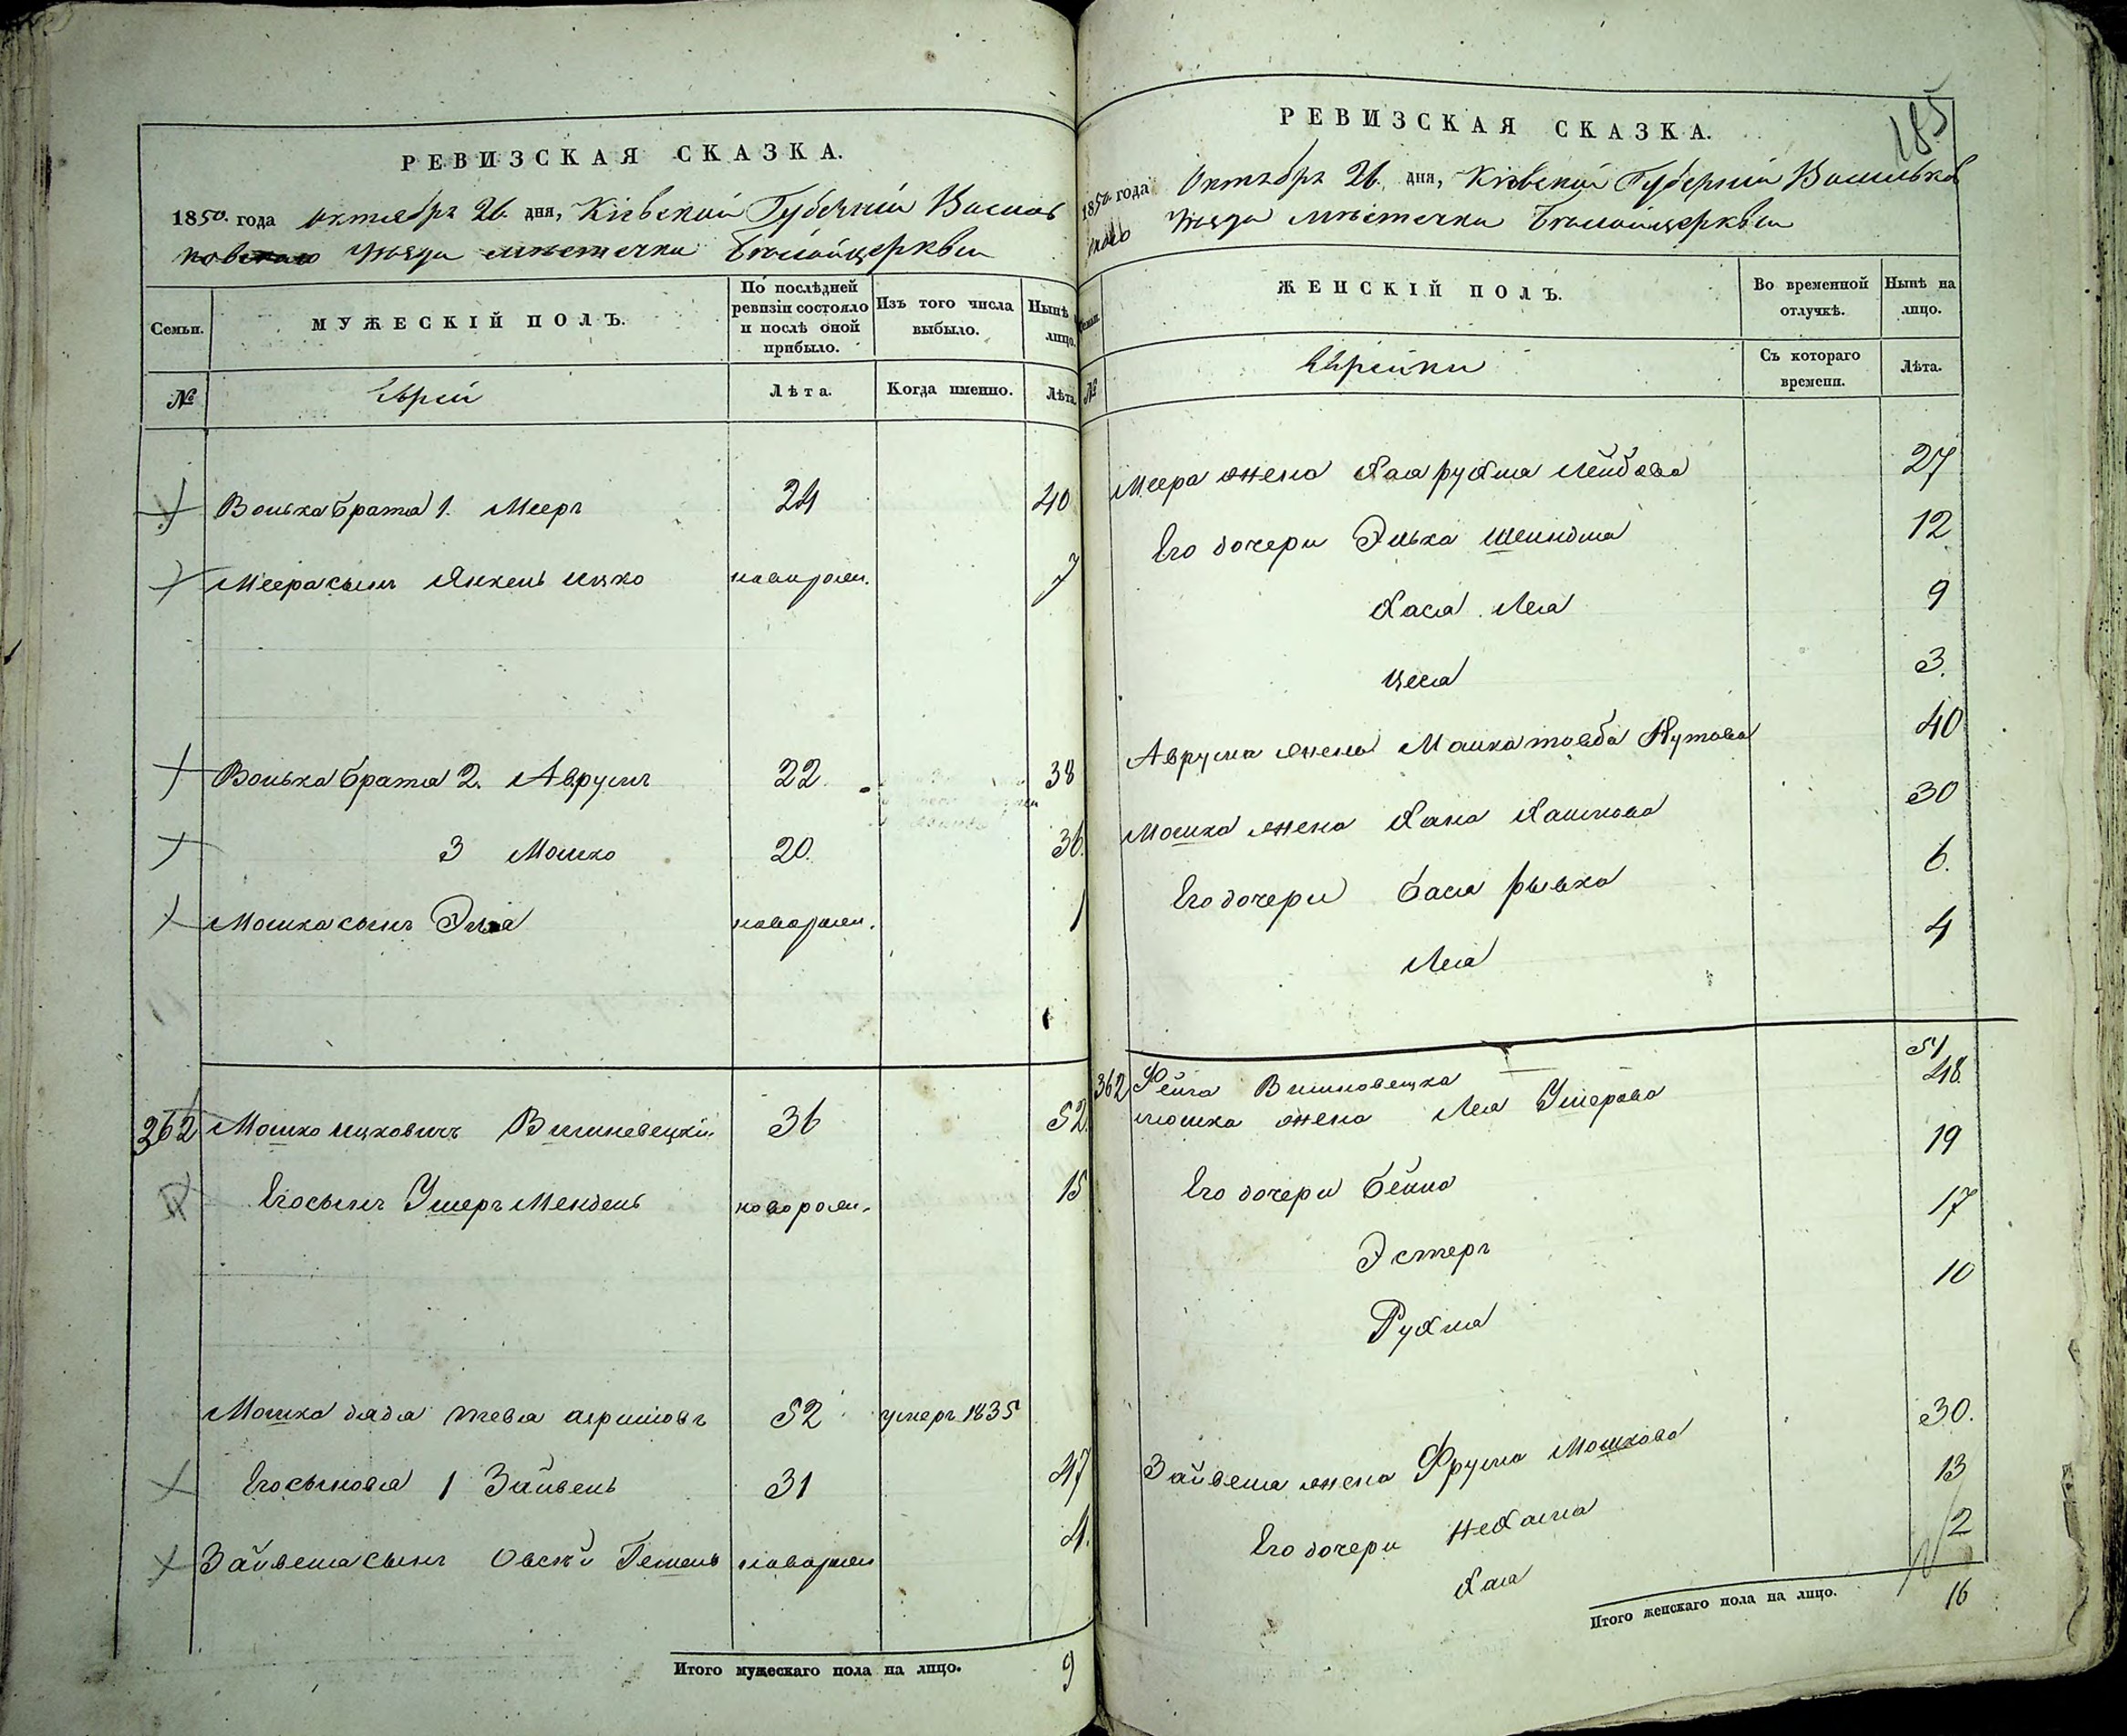 РЕВИЗСКАЯ СКАЗКА.
1850. года октября 26. дня, Кіевской Губерніи Василь
ковскаго уѣзда мѣстечка Бѣлойцеркви
Семьи.
МУЖЕСКІЙ ПОЛЪ.
По послѣдней ревизіи состояло и послѣ оной прибыло.
Изъ того числа выбыло.
Нынѣ лицо.
№
Еврей
Лѣта.
Когда именно.
Лѣта.
Волька брата 1. Мееръ 24 40
Меера сынъ Янкель Ицко новорож. 7
Волька брата 2. Аврумъ 22 38
3 Мошко 20. 36.
Мошка сынъ новорож. 1
362 Мошко Ицковичъ Вишневецкій 36 52.
Его сынъ Умеръ Мендель новорож. 15
Мошка дядя 52 умеръ 1835
Его сыновья 1 Зайвель 31 47
Зайвеля сынъ Овсѣй новорож 4.
Итого мужескаго пола на лицо. 9
185
РЕВИЗСКАЯ СКАЗКА.
1850 года Октября 26. дня, Кіевской Губерніи Васильков
скаго уѣзда мѣстечка Бѣлойцеркви
Семьи.
ЖЕНСКІЙ ПОЛЪ.
Во временной отлучкѣ.
Нынѣ на лицо.
№
Еврейки
Съ котораго времени.
Лѣта.
Меера жена Хая Рухля Лейбова 27
Его дочери Элька Шейндля 12
Хася Лея 9
Цеся 3.
Аврума жена 40
Мошка жена Хана Хаимова 30
Его дочери Бася Рывка 6.
Лея 4
362 Фейга Вишновецка 51
Мошка жена Лея Умерова 48.
Его дочери Бейла 19
Эстеръ 17
Рухля 10
Зайвеля жена Фрума Мошкова 30.
Его дочери Нехама 13
Хая 2
Итого женскаго пола на лицо. 16